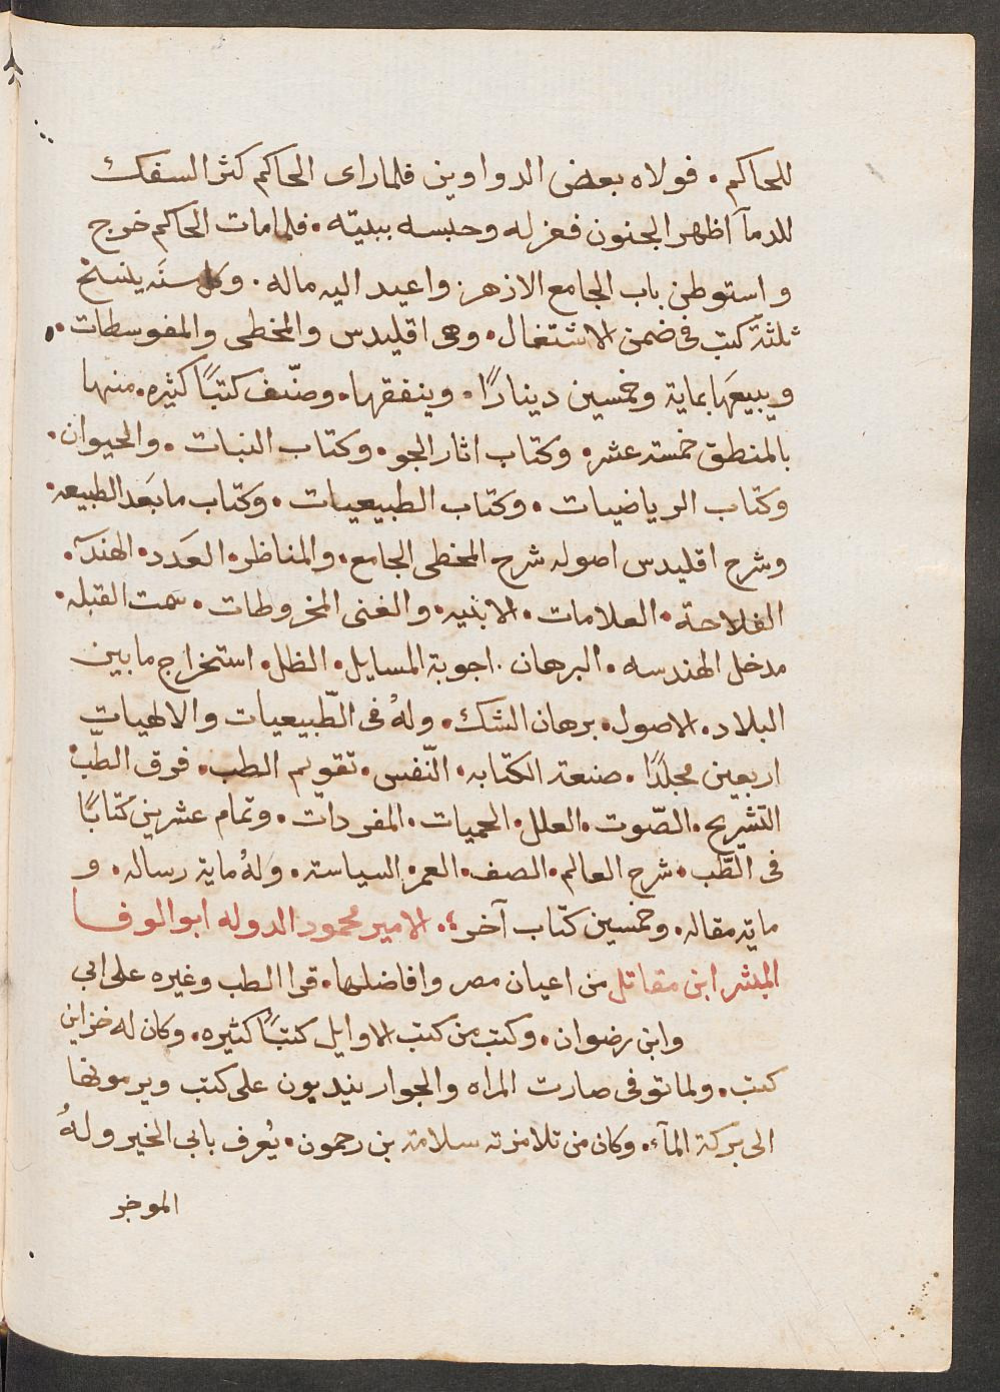 للحاكم . فولاه بعض الدواوين فلما راى الحاكم كثر السفك
للدمآ اظهر الجنون فعزله وحبسه ببيته . فلما مات الحاكم خرج
واستوطن باب الجامع الازهر . واعيد اليه ماله . وكل سنَه ينسخ
ثلثة كتب فى ضمن الاشتغال . وهى اقليدس والمخطى والمفوسطات .
ويبيعَها بماية وخمسين دينارًا . وينفقها . وصنّف كتبًا كثيره . منها
بالمنطق خمستر عشر . وكتاب اثار الجو . وكتاب النبات . والحيوان .
وكتاب الرياضيات . وكتاب الطبيعيات . وكتاب ما بَعد الطبيعه .
وشرح اقليدس اصوله شرح المخطى الجامع . والمناظر . العَدد . الهندَ .
الفلاحة . العلامات . الابنيه . والغنى المخروطات . سمت القبله .
مدخل الهندسه . البرهان . اجوبة المسايل . الظل . استخراج ما بين
البلاد . الاصول . برهان الشك . ولهُ فى الطّبيعيات والالهيات
اربعين مجلدًا . صنعة الكتابه . النّفس . تقويم الطب . فرق الطّب
التّشريح . الصّوت . العلل . الحميات . المفردات . وتمام عشرين كتابًا
فى الطّب . شرح العالم . الصف . العمر . السياسة . ولهُ ماية رساله . و
ماية مقاله . وخمسين كتاب آخر . الامير محمود الدوله ابو الوفا
المبشر ابن مقاتل من اعيان مصر وافاضلها . قرا الطب وغيره على ابى
وابن رضوان . وكتب من كتب الاوايل كتبًا كثيره . وكان له خزاين
كتب . ولما توفى صارت المراه والجوار يندبون على كتب ويرمونها
الى بركة المآء . وكان من تلامزته سلامة بن رحمون . يُعرف بابى الخير ولهُ
الموجز